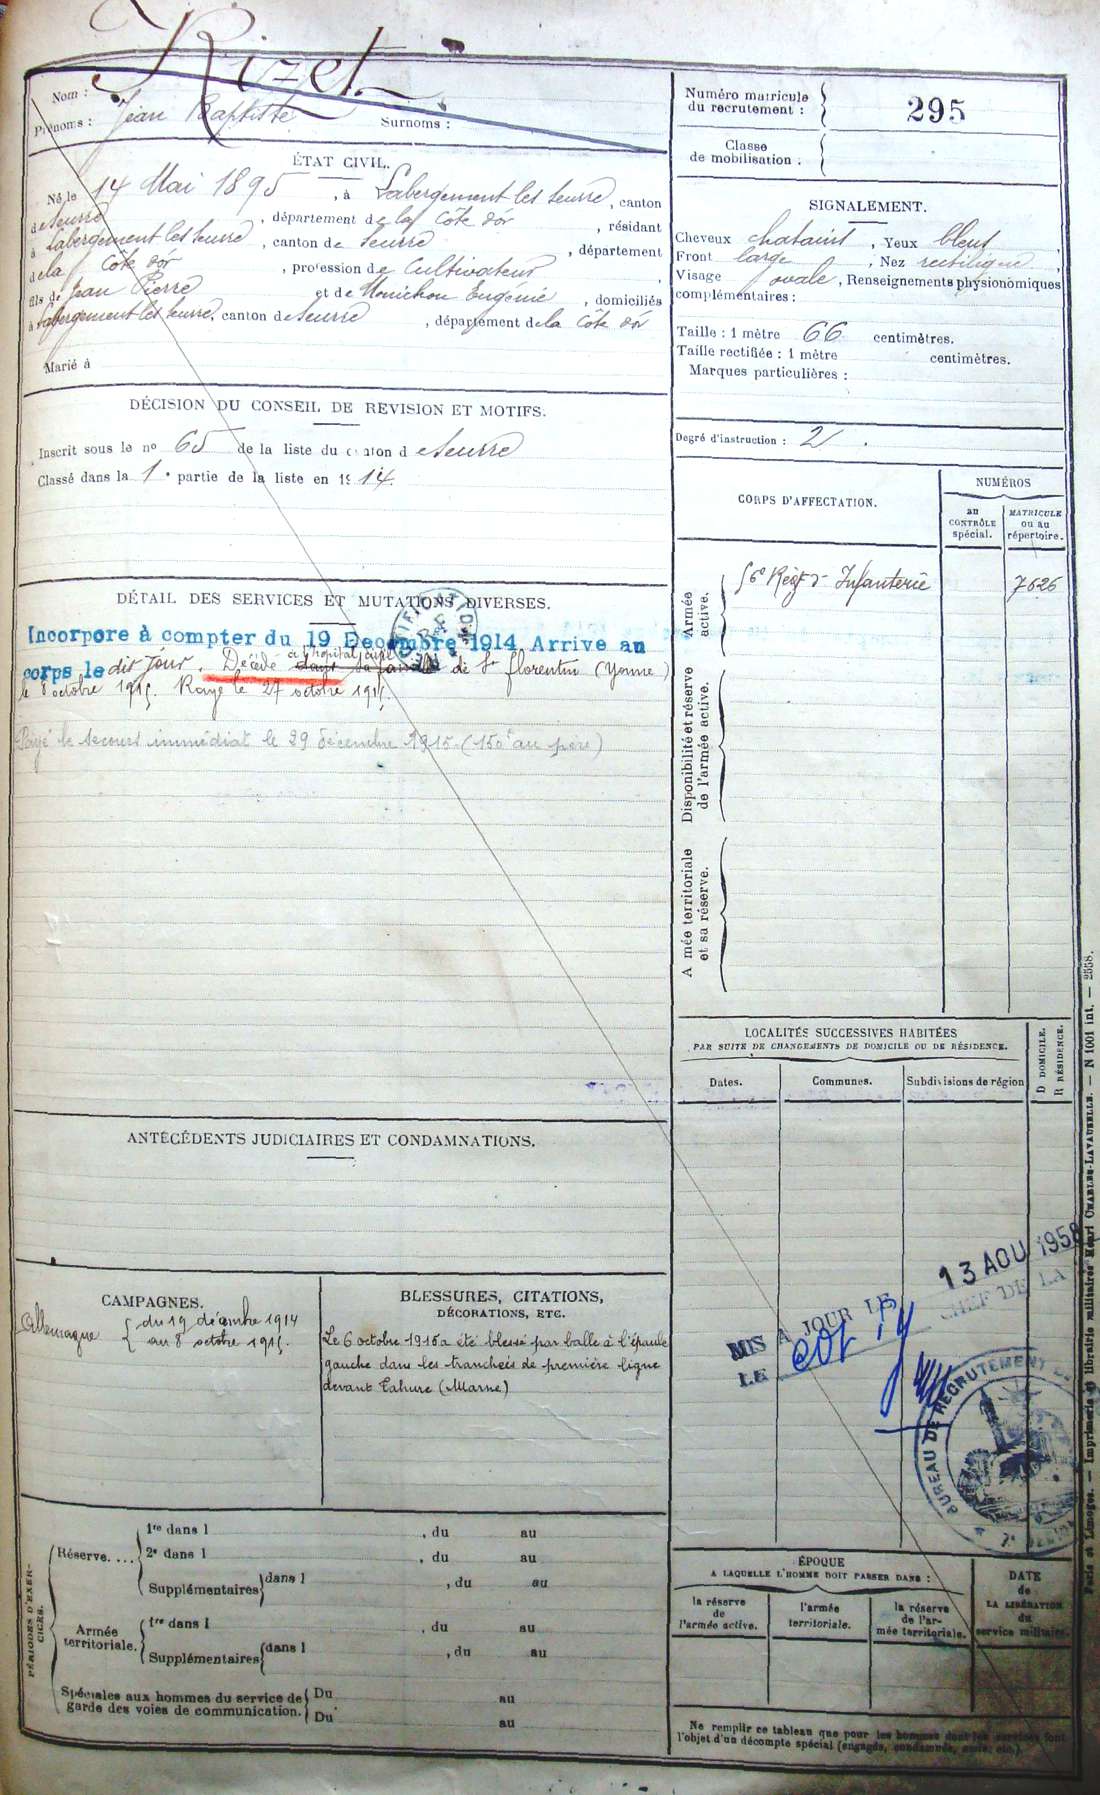 Rizet
Nom :
Prénoms : Jean Baptiste Surnoms :
Numéro matricule
du recrutement : 295
Classe
de mobilisation :
ÉTAT CIVIL.
Né le 14 Mai 1895, à Labergement les Seurre, canton
de Seurre, département de la Côte d'Or, résidant
à Labergement les Seurre, canton de Seurre, département
de la Côte d'Or, profession de Cultivateur
fils de Jean Pierre et de Monichon Eugénie, domiciliés
à Labergement les Seurre, canton de Seurre, département de la Côte d'Or
Marié à
SIGNALEMENT.
Cheveux chatains, Yeux bleus,
Front large, Nez rectiligne,
Visage ovale, Renseignements physionomiques
complémentaires :
Taille : 1 mètre 66 centimètres.
Taille rectifiée : 1 mètre centimètres.
Marques particulières :
Degré d'instruction : 2.
DÉCISION DU CONSEIL DE REVISION ET MOTIFS.
Inscrit sous le nº 65 de la liste du canton de Seurre
Classé dans la 1e partie de la liste en 1914.
DÉTAIL DES SERVICES ET MUTATIONS DIVERSES.
Incorporé à compter du 19 Decembre 1914 Arrive au
corps le dit jour. Décédé à l'hopital civil dans sa de St Florentin (Yonne)
le 8 octobre 1915. Rayé le 27 octobre 1915.
Payé le secours immédiat le 29 décembre 1915 (150f au père)
CORPS D'AFFECTATION.
NUMÉROS
au
CONTRÔLE
spécial.
MATRICULE
ou au
répertoire.
Armée
active.
56e Régt d'Infanterie 7626
Disponibilité et réserve
de l'armée active.
A mée territoriale
et sa réserve.
LOCALITÉS SUCCESSIVES HABITÉES
PAR SUITE DE CHANGEMENTS DE DOMICILE OU DE RÉSIDENCE.
Dates.
Communes.
Subdivisions de région
D DOMICILE.
R RÉSIDENCE.
ANTÉCÉDENTS JUDICIAIRES ET CONDAMNATIONS.
CAMPAGNES.
Allemagne { du 19 décembre 1914
au 8 octobre 1915.
BLESSURES, CITATIONS,
DÉCORATIONS, ETC.
Le 6 octobre 1915 a été blessé par balle à l'épaule
gauche dans les tranchées de première ligne
devant Tahure (Marne)
13 AOU 1958
MIS A JOUR LE
CHEF DE LA
LE
BUREAU DE RECRUTEMENT
PÉRIODES D'EXER-
CICES.
Réserve....
1re dans l , du au
2e dans l , du au
Supplémentaires dans l , du au
Armée
territoriale.
1re dans l , du au
Supplémentaires dans l , du au
Spéciales aux hommes du service de
garde des voies de communication.
Du au
Du au
ÉPOQUE
A LAQUELLE L'HOMME DOIT PASSER DANS :
la réserve
de
l'armée active.
l'armée
territoriale.
la réserve
de l'ar-
mée territoriale.
DATE
de
LA LIBÉRATION
du
service militaire.
Ne remplir ce tableau que pour les hommes dont les services font
l'objet d'un décompte spécial (engagés, condamnés, omis, etc.).
Paris et Limoges. — Imprimerie et librairie militaires Henri CHARLES-LAVAUZELLE. — N 1001 int. — 2558.